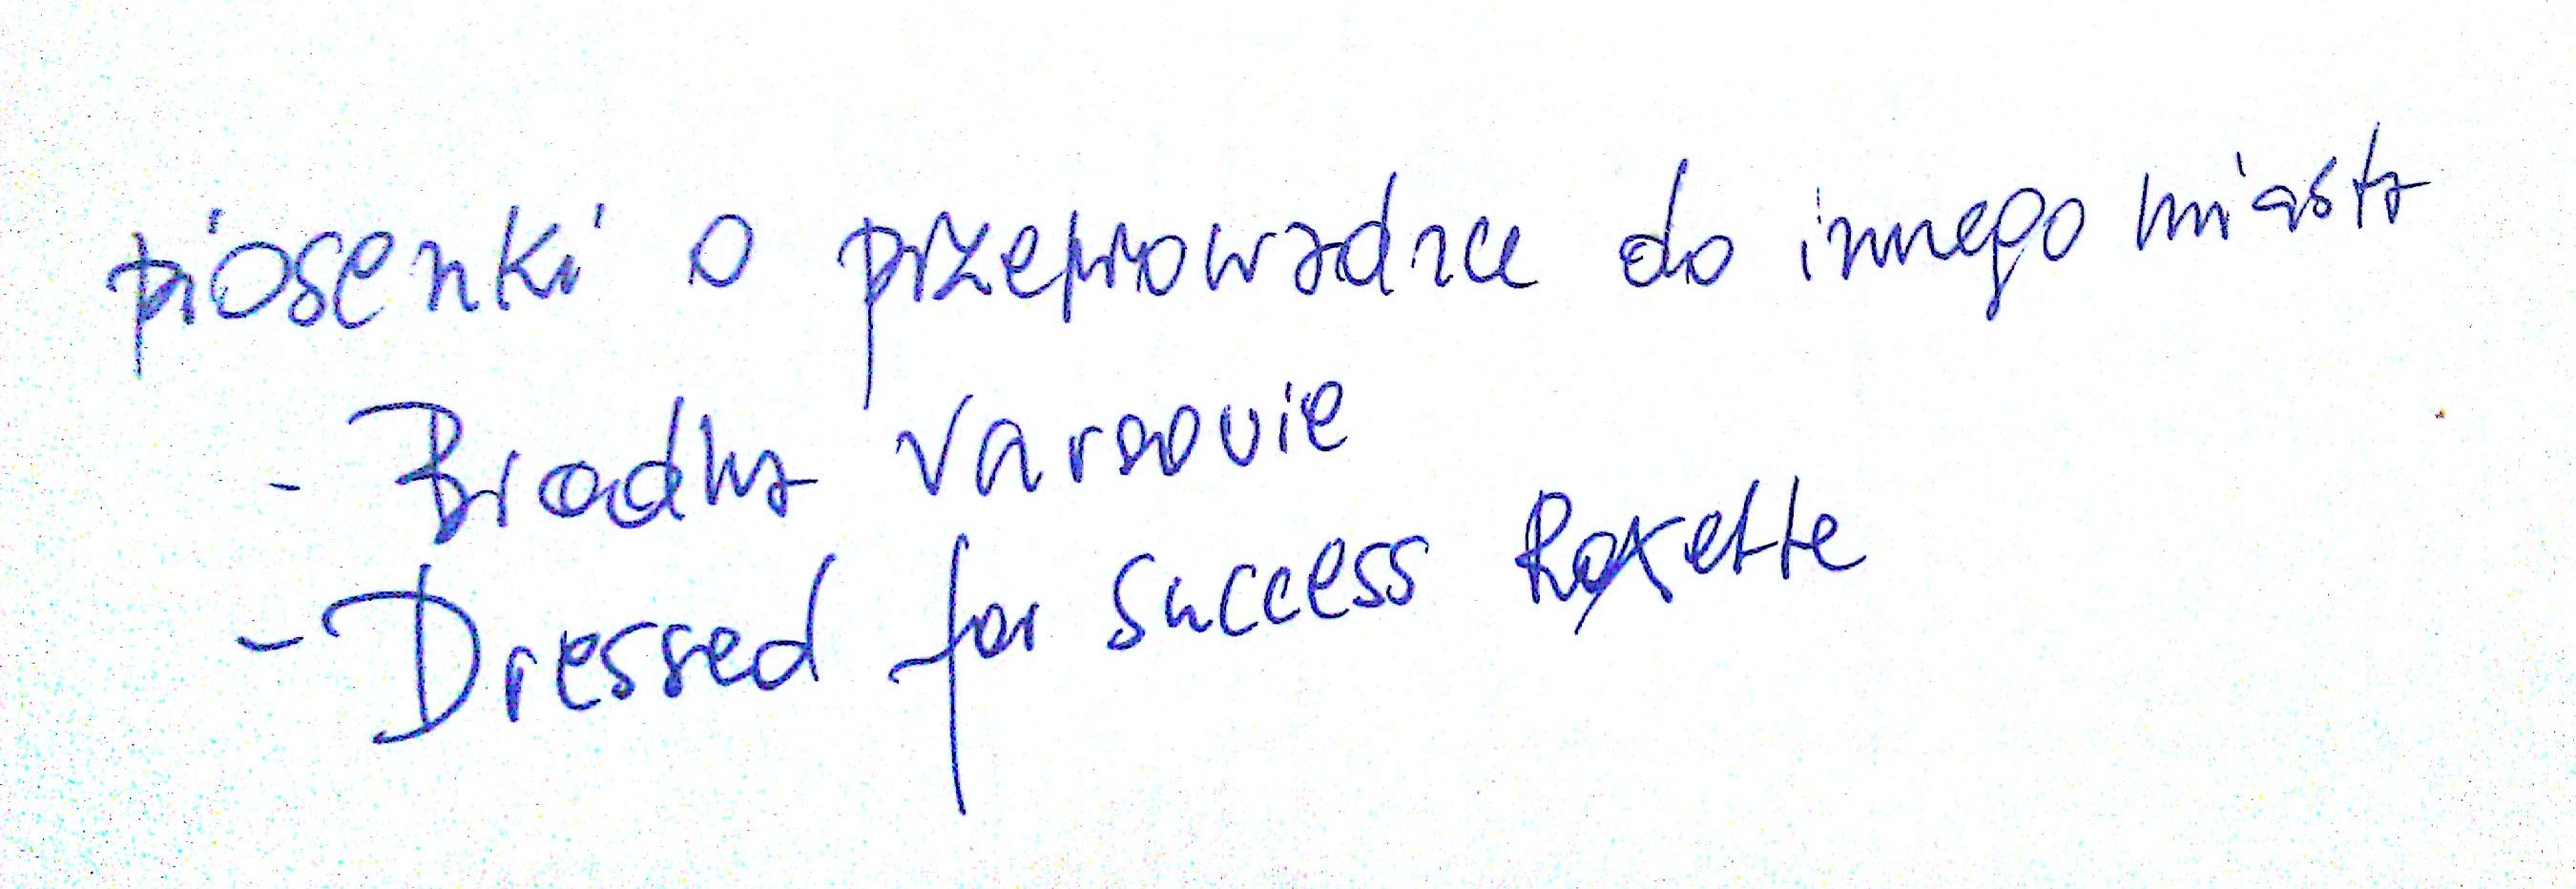 piosenki o przeprowadzce do innego miasta
- Brodka Varsovie
- Dressed for success Roxette